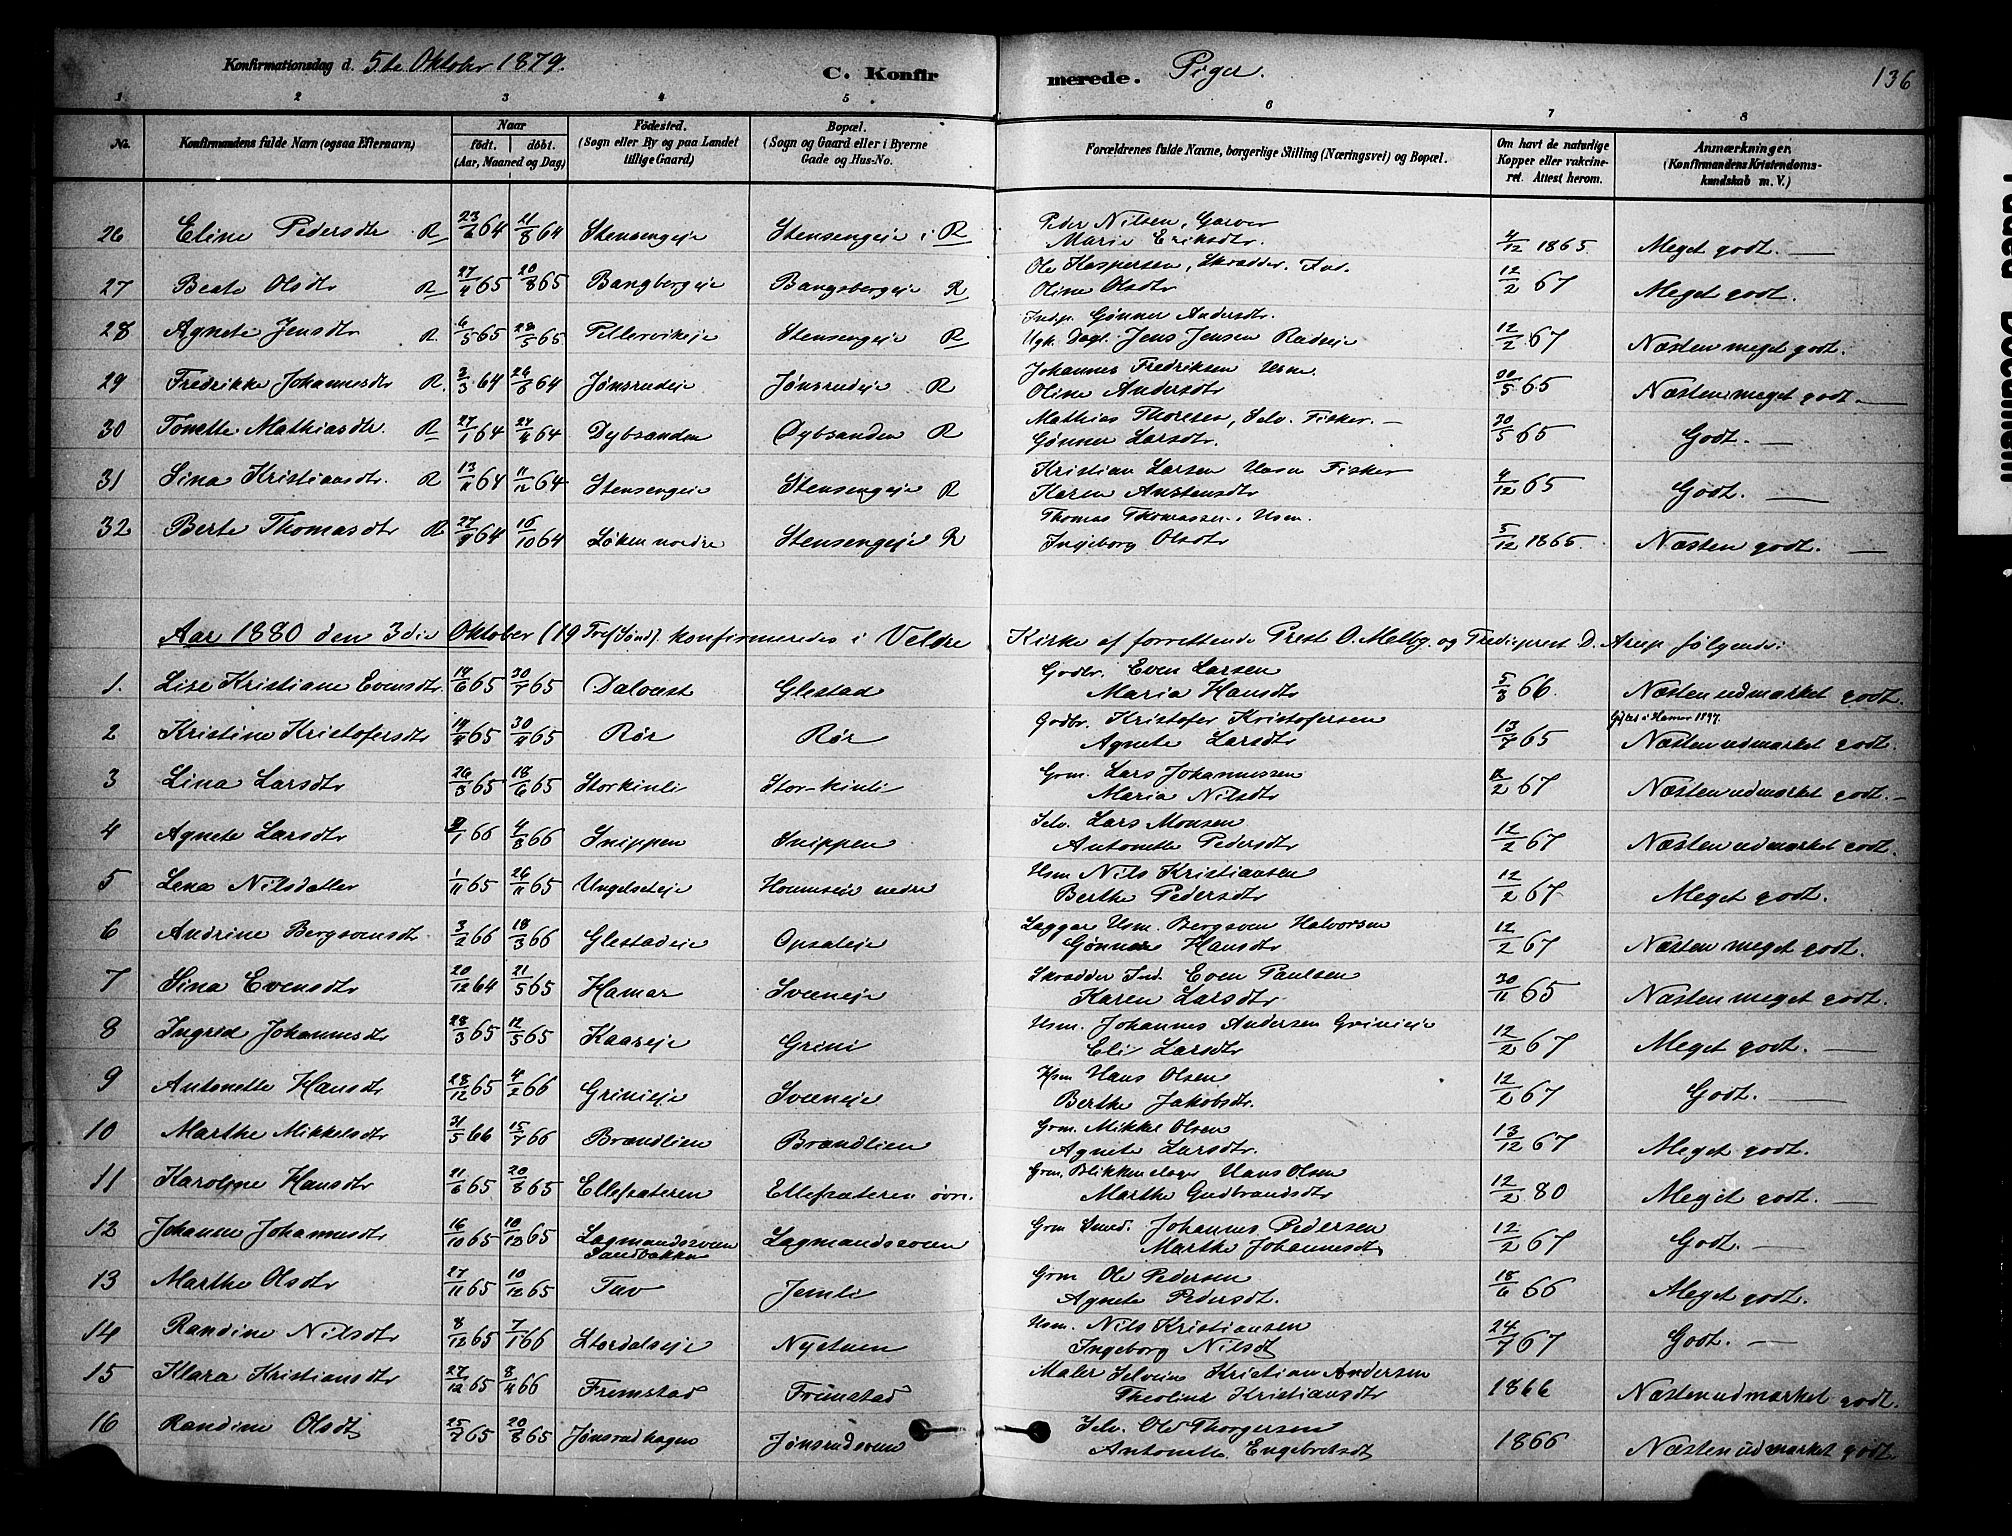 Konfirmationsdag d. 5te Oktober 1879. C. Konfir merede. Piger. 136
1 2 3 4 5 6 7 8
No. Konfirmandens fulde Navn (ogsaa Efternavn) Naar født. døbt. (Aar, Maaned og Dag) Födested. (Sogn eller By og paa Landet tillige Gaard) Bopæl. (Sogn og Gaard eller i Byerne Gade og Hus-No. Forældrenes fulde Navne, borgerlige Stilling (Næringsvei) og Bopæl. Om havt de naturlige Kopper eller vakcineret. Attest herom. Anmærkninger. (Konfirmandens Kristendomskundskab m. V.)
26 Eline Pedersdtr R 64 21/8 64 Stensengeje Stensengeje i R Peder Nilsen, Garver Maria Eriksdtr. 4/12 1865 Meget godt.
27 Beate Olsdtr R 27/4 65 20/8 65 Bangbergeje Bangsbergeje R Ole Kaspersen, Skrædder. Ind. Oline Olsdtr 12/2 67 Meget godt.
28 Agnete Jensdtr R 6/5 65 28/5 65 Pellervikeje Stensengeje R Indp. Gønner Andersdtr. Ugk. Dagl. Jens Jensen Rudeje 12/2 67 Næsten meget godt.
29 Fredrikke Johannesdtr R. 2/3 64 26/3 64 Jønsrudeje Jønsrudeje R Johannes Fredriksen Usm. Oline Andersdtr 30/5 65 Næsten meget godt.
30 Tonette Mathiasdtr. R 27/1 64 24/4 64 Dybsanden Dybsanden R Mathias Thoresen, Selv. Fisker. Gønner Larsdtr. 30/5 65 Godt.
31 Sina Kristiansdtr. R 64 11/12 64 Stensengeje Stensengeje R Kristian Larsen Usm Fisker Karen Austensdtr 4/12 65 Godt.
32 Berte Thomasdtr R 64 16/10 64 Løken nordre Stensengeje R Thomas Thomassen. Usm. Ingeborg Olsdtr 5/12 1865. Næsten godt.
Aar 1880 den 3die Oktober (19 Tref Sønd). konfirmeredes i Veldre Kirke af forrettende Prest O. Melbg. og Tredieprest D. Arup følgende:
1. Lise Kristiane Evensdtr 14/6 65 30/7 65 Dalvest Glestad Gedbr. Even Larsen Maria Hansdtr 5/3 66. Næsten udmarket godt.
2 Kristine Kristofersdtr 14/4 65 30/4 65 Rør Rør Gedbr. Kristofer Kristofersen Agnete Larsdtr 13/7 65 Giftes i Hamar 1897. Næsten udmarket godt.
3 Lina Larsdtr 26/3 65 18/6 65 Storkinli Stor-kinli Grm. Lars Johannessen Maria Nilsdtr 12/2 67 Næsten udmarket godt.
4 Agnete Larsdtr 66 4/3 66 Snippen Snippen Selv. Lars Monsen Antonette Pedersdtr 12/2 67 Næsten udmarket godt.
5 Lena Nilsdatter 1/11 65 26/11 65 Ungelseteje Houmseie nedre Usm Nils Kristiansen Berthe Pedersdtr 12/2 67 Meget godt.
6 Andrine Bergsvensdtr 3/2 66 18/3 66 Glestadeje Opsaleje Lægger Usm. Bergsven Halvorsen Gønner Hansdtr 12/2 67 Næsten meget godt.
7 Sina Evensdtr 20/12 64 21/5 65 Hamar Sveeneje Skrædder Ind. Even Paulsen Karen Larsdtr 30/11 65 Næsten meget godt.
8 Ingrid Johannesdtr 28/3 65 12/5 65 Kaaseje Grini Usm. Johannes Andersen Grinieje Eli Larsdtr 12/2 67 Meget godt.
9 Antonette Hansdtr 28/12 65 4/2 66 Grinieje Sveeneje Usm Hans Olsen Berthe Jakobsdtr. 12/2 67 Godt.
10 Marthe Mikkelsdtr 31/5 66 15/7 66 Brændlien Brændlien Grm. Mikkel Olsen Agnete Larsdtr. 13/12 67 Meget godt.
11 Karoline Hansdtr 21/6 65 20/8 65 Ellesæteren Ellesæteren øvr. Grm. Blikkenslager Hans Olsen Marthe Gudbrandsdtr 12/2 80 Meget godt.
12 Johanne Johannesdtr 16/10 65 10/12 65 Lagmandsveen Sandbakken Lagmandsveen Grm Smed. Johannes Pedersen Marthe Johannesdt 12/2 67 Godt.
13 Marthe Olsdtr 27/11 65 10/12 65 Tuv Jemli Grm Ole Pedersen Agnete Pedersdt. 18/6 66 Meget godt.
14 Randine Nilsdtr 8/12 65 7/1 66 Stordalseje Nystuen Usm. Nils Kristiansen Ingeborg Nilsdt 24/7 67 Godt.
15 Klara Kristiansdtr 27/12 65 8/4 66 Fremstad Fremstad Maler Selveier Kristian Andersen Theoline Kristiansdtr 1866 Næsten udmarket godt.
16 Randine Olsdt 25/7 65 20/8 65 Jønsrudhagen Jønsrudsveen Selv. Ole Thorgersen Antonette Engebretsdt 1866 Næsten udmarket godt.